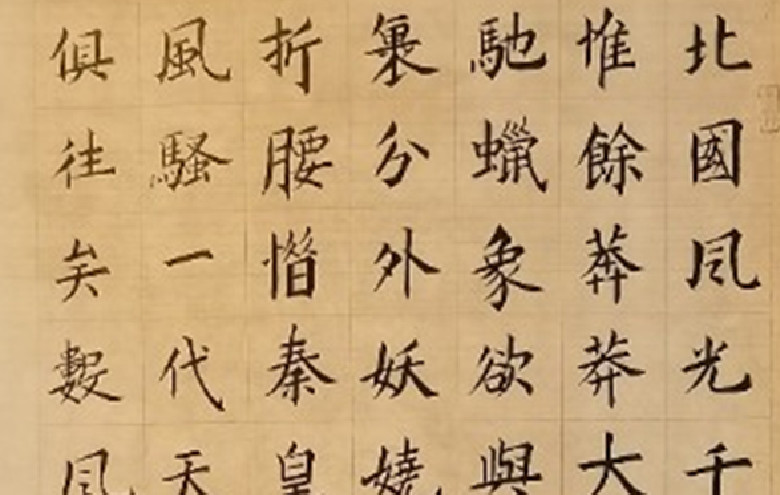 北國風光千
惟餘莽莽大
馳蠟象欲與
裹分外妖嬈
折腰惜秦皇
風騷一代天
俱往矣數風